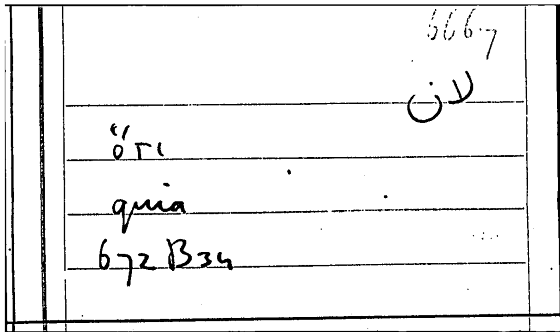 6667
لان
ὅτι
quia
672 B34